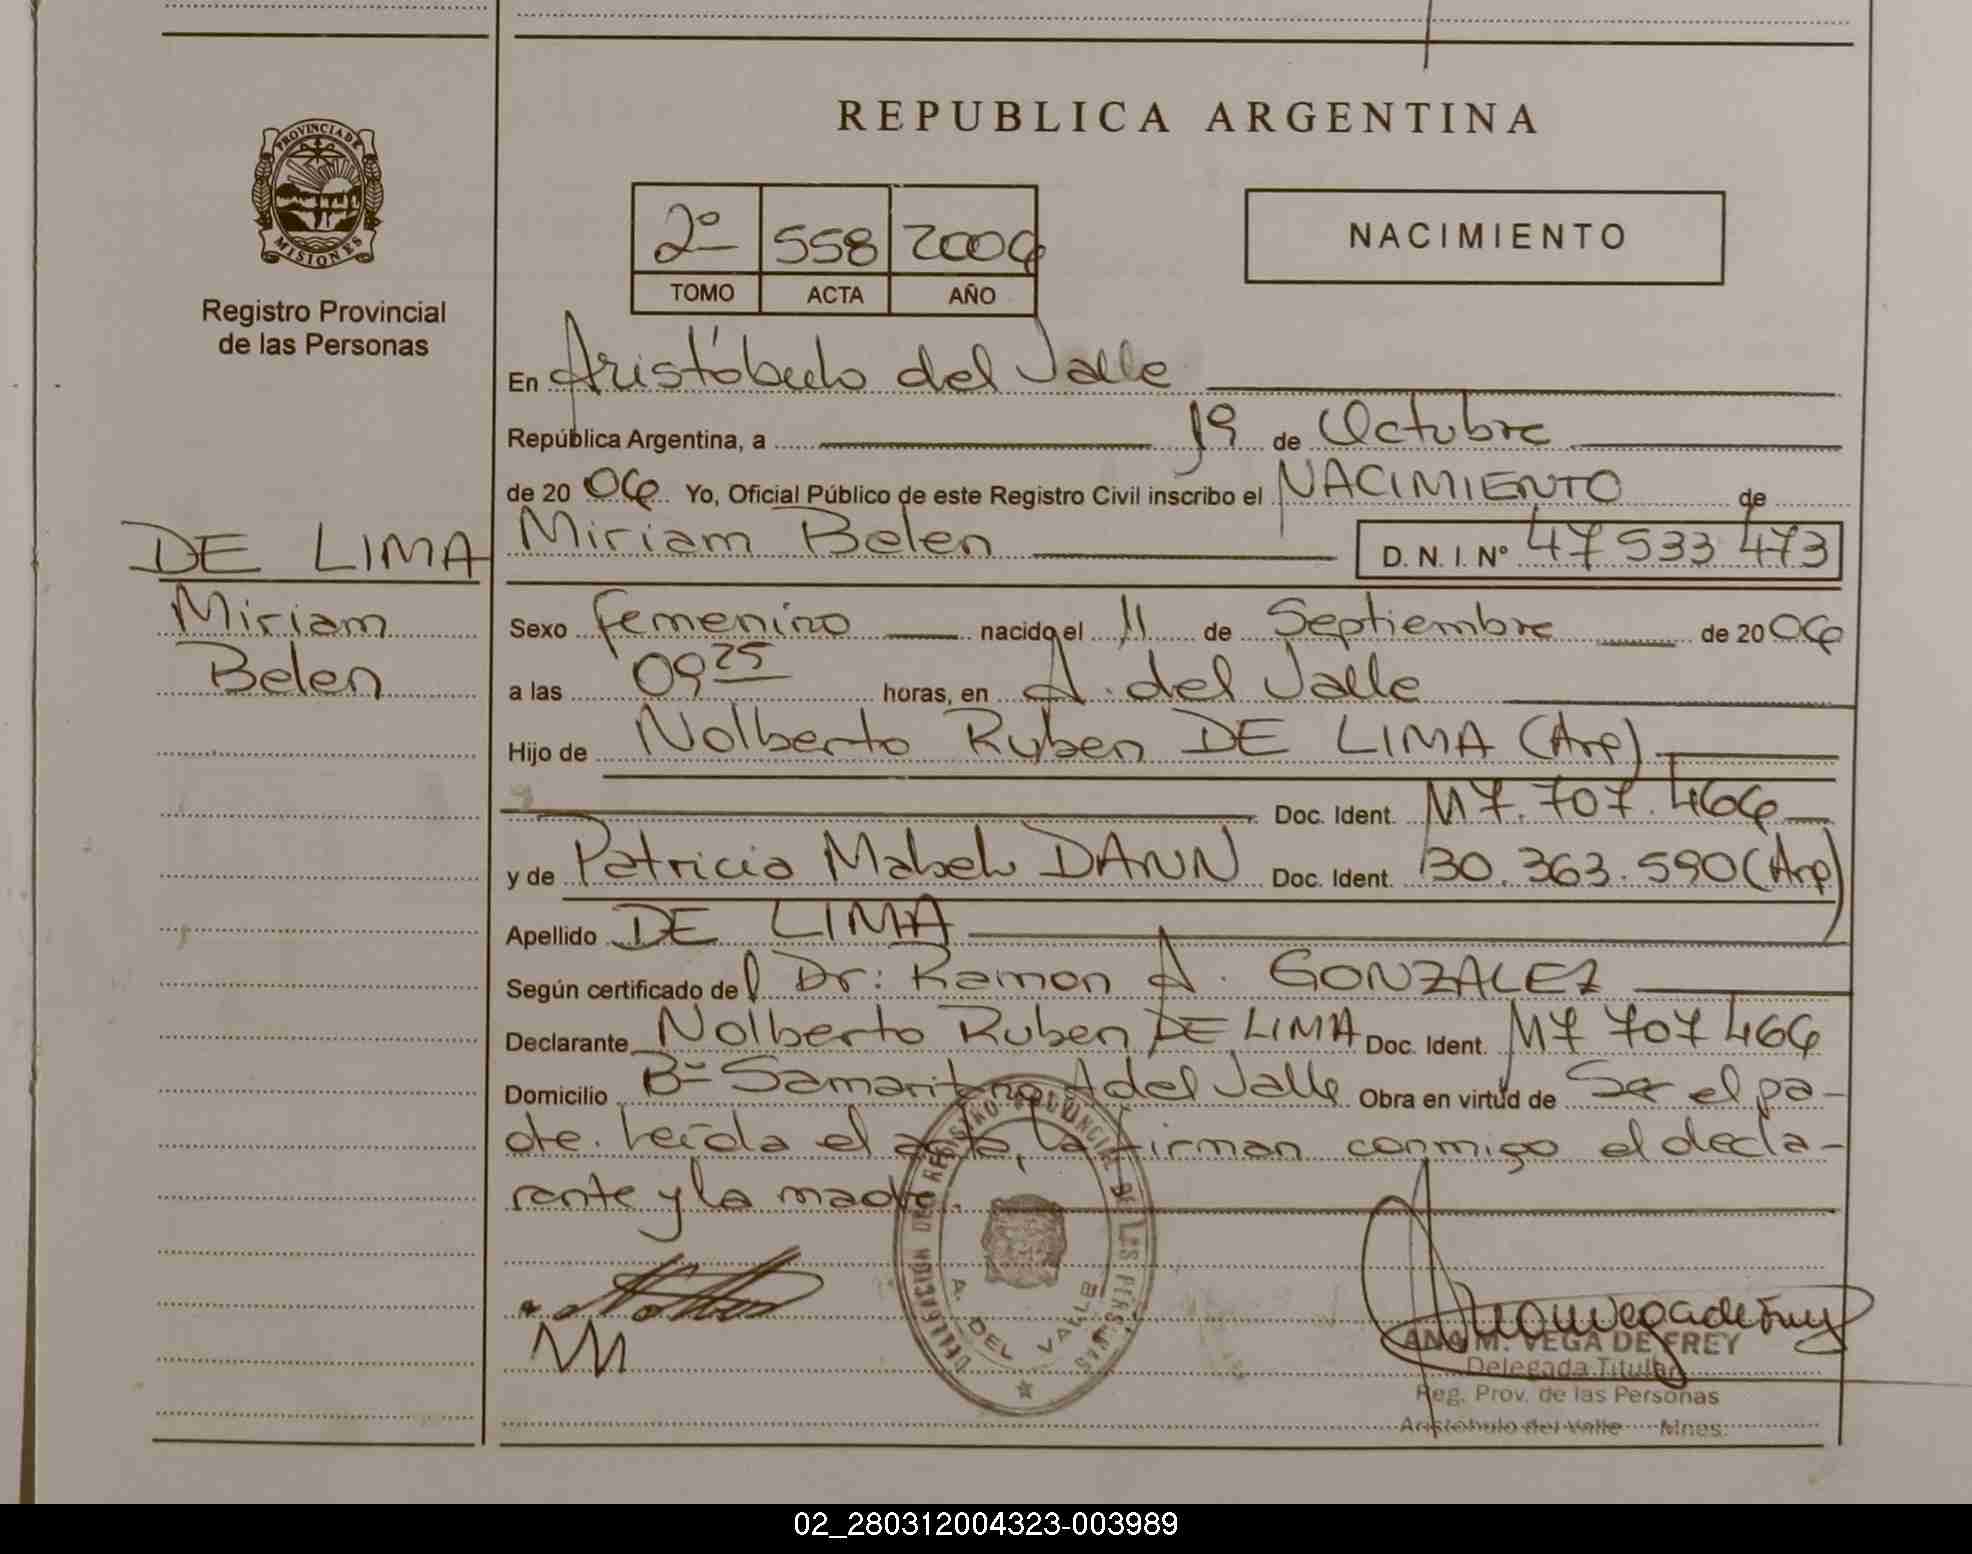 REPUBLICA ARGENTINA
PROVINCIA DE
MISIONES
Registro Provincial
de las Personas
2º 558 2006
TOMO ACTA AÑO
NACIMIENTO
En Aristóbulo del Valle
República Argentina, a 19 de Octubre
de 20 06 Yo, Oficial Público de este Registro Civil inscribo el NACIMIENTO de
DE LIMA
Miriam
Belen
Miriam Belen D. N. I. Nº 47 533 473
Sexo femenino nacido el 11 de Septiembre de 20 06
a las 09 25 horas, en A. del Valle
Hijo de Nolberto Ruben DE LIMA (Arg)
Doc. Ident. M7.707.466
y de Patricia Mabel DANN Doc. Ident. 30.363.590 (Arg)
Apellido DE LIMA
Según certificado del Dr: Ramon A. GONZALEZ
Declarante Nolberto Ruben DE LIMA Doc. Ident. M7 707 466
Domicilio Bº Samaritano A del Valle Obra en virtud de Ser el pa-
dre. Leída el acta, la firman conmigo el decla-
rante y la madre.
DELEGACION DEL REGISTRO PROVINCIAL DE LAS PERSONAS
A. DEL VALLE
ANA M. VEGA DE FREY
Delegada Titular
Reg. Prov. de las Personas
Aristóbulo del Valle Mnes.
02_280312004323-003989